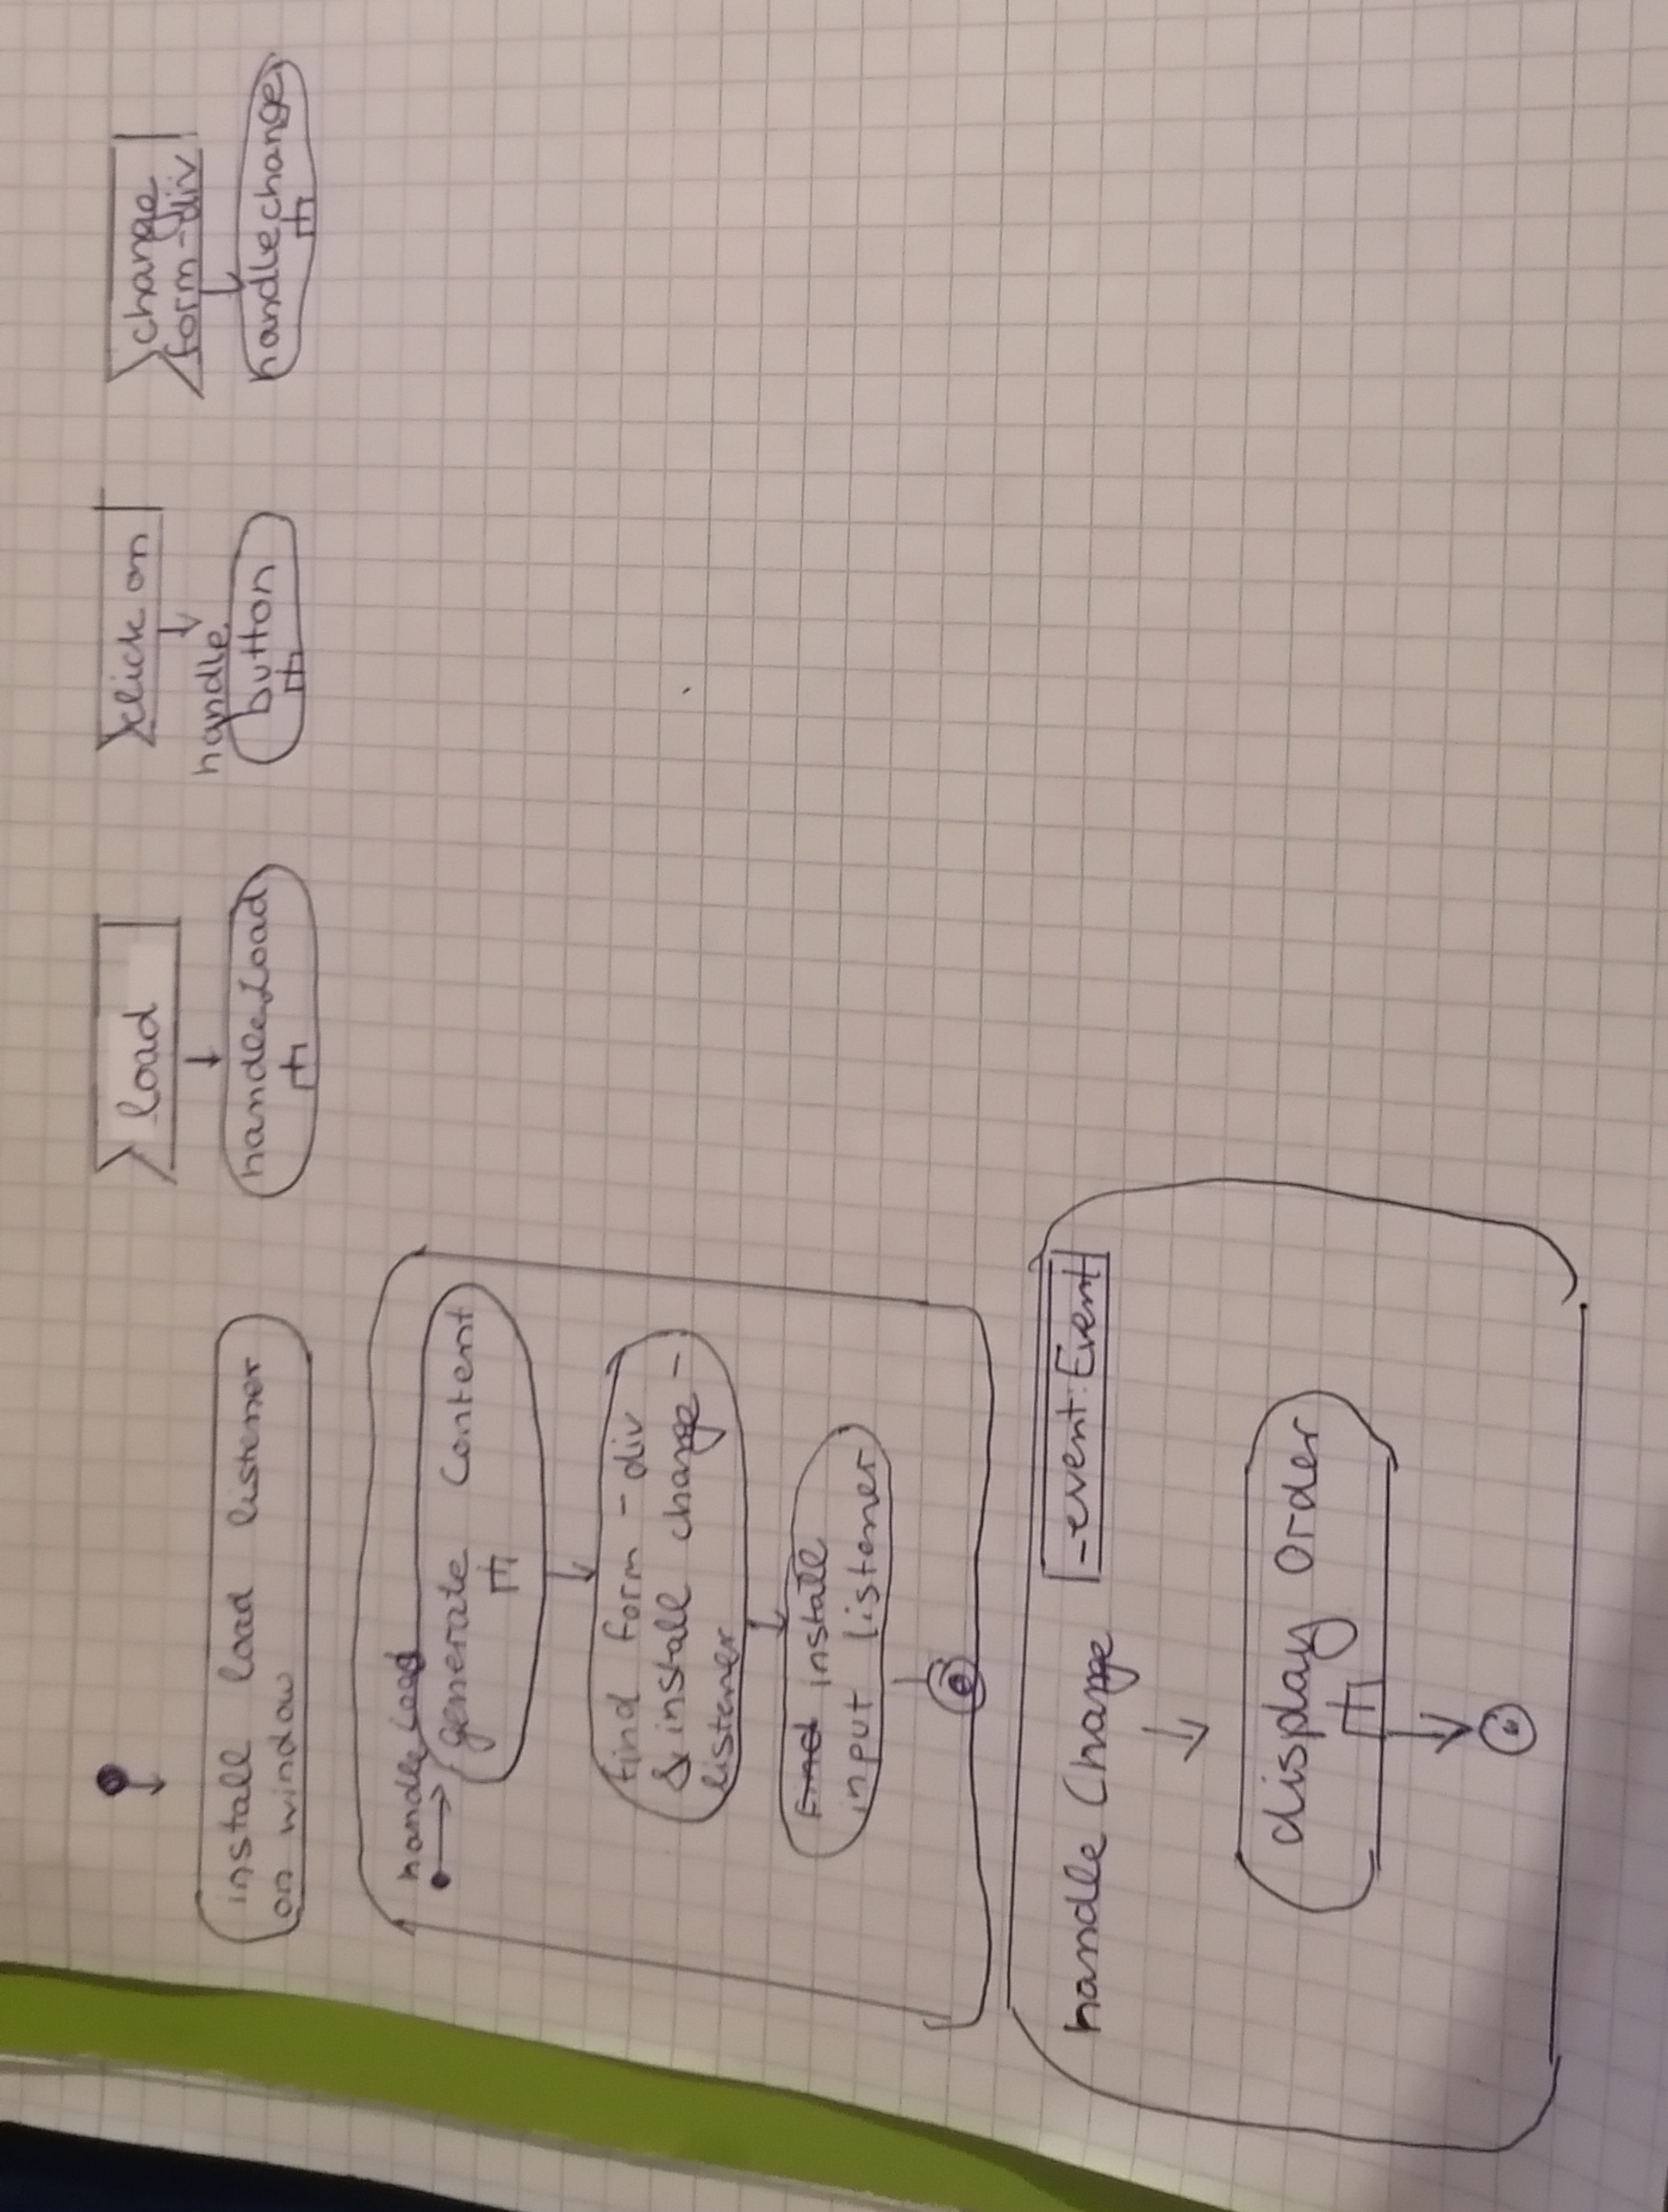 install load listener
on window
load
handleLoad
click on
handle
button
change
form-div
handlechange
handleLoad
generate Content
find form-div
& install change-
listener
find install
input listener
handle Change
-event:Event
display Order